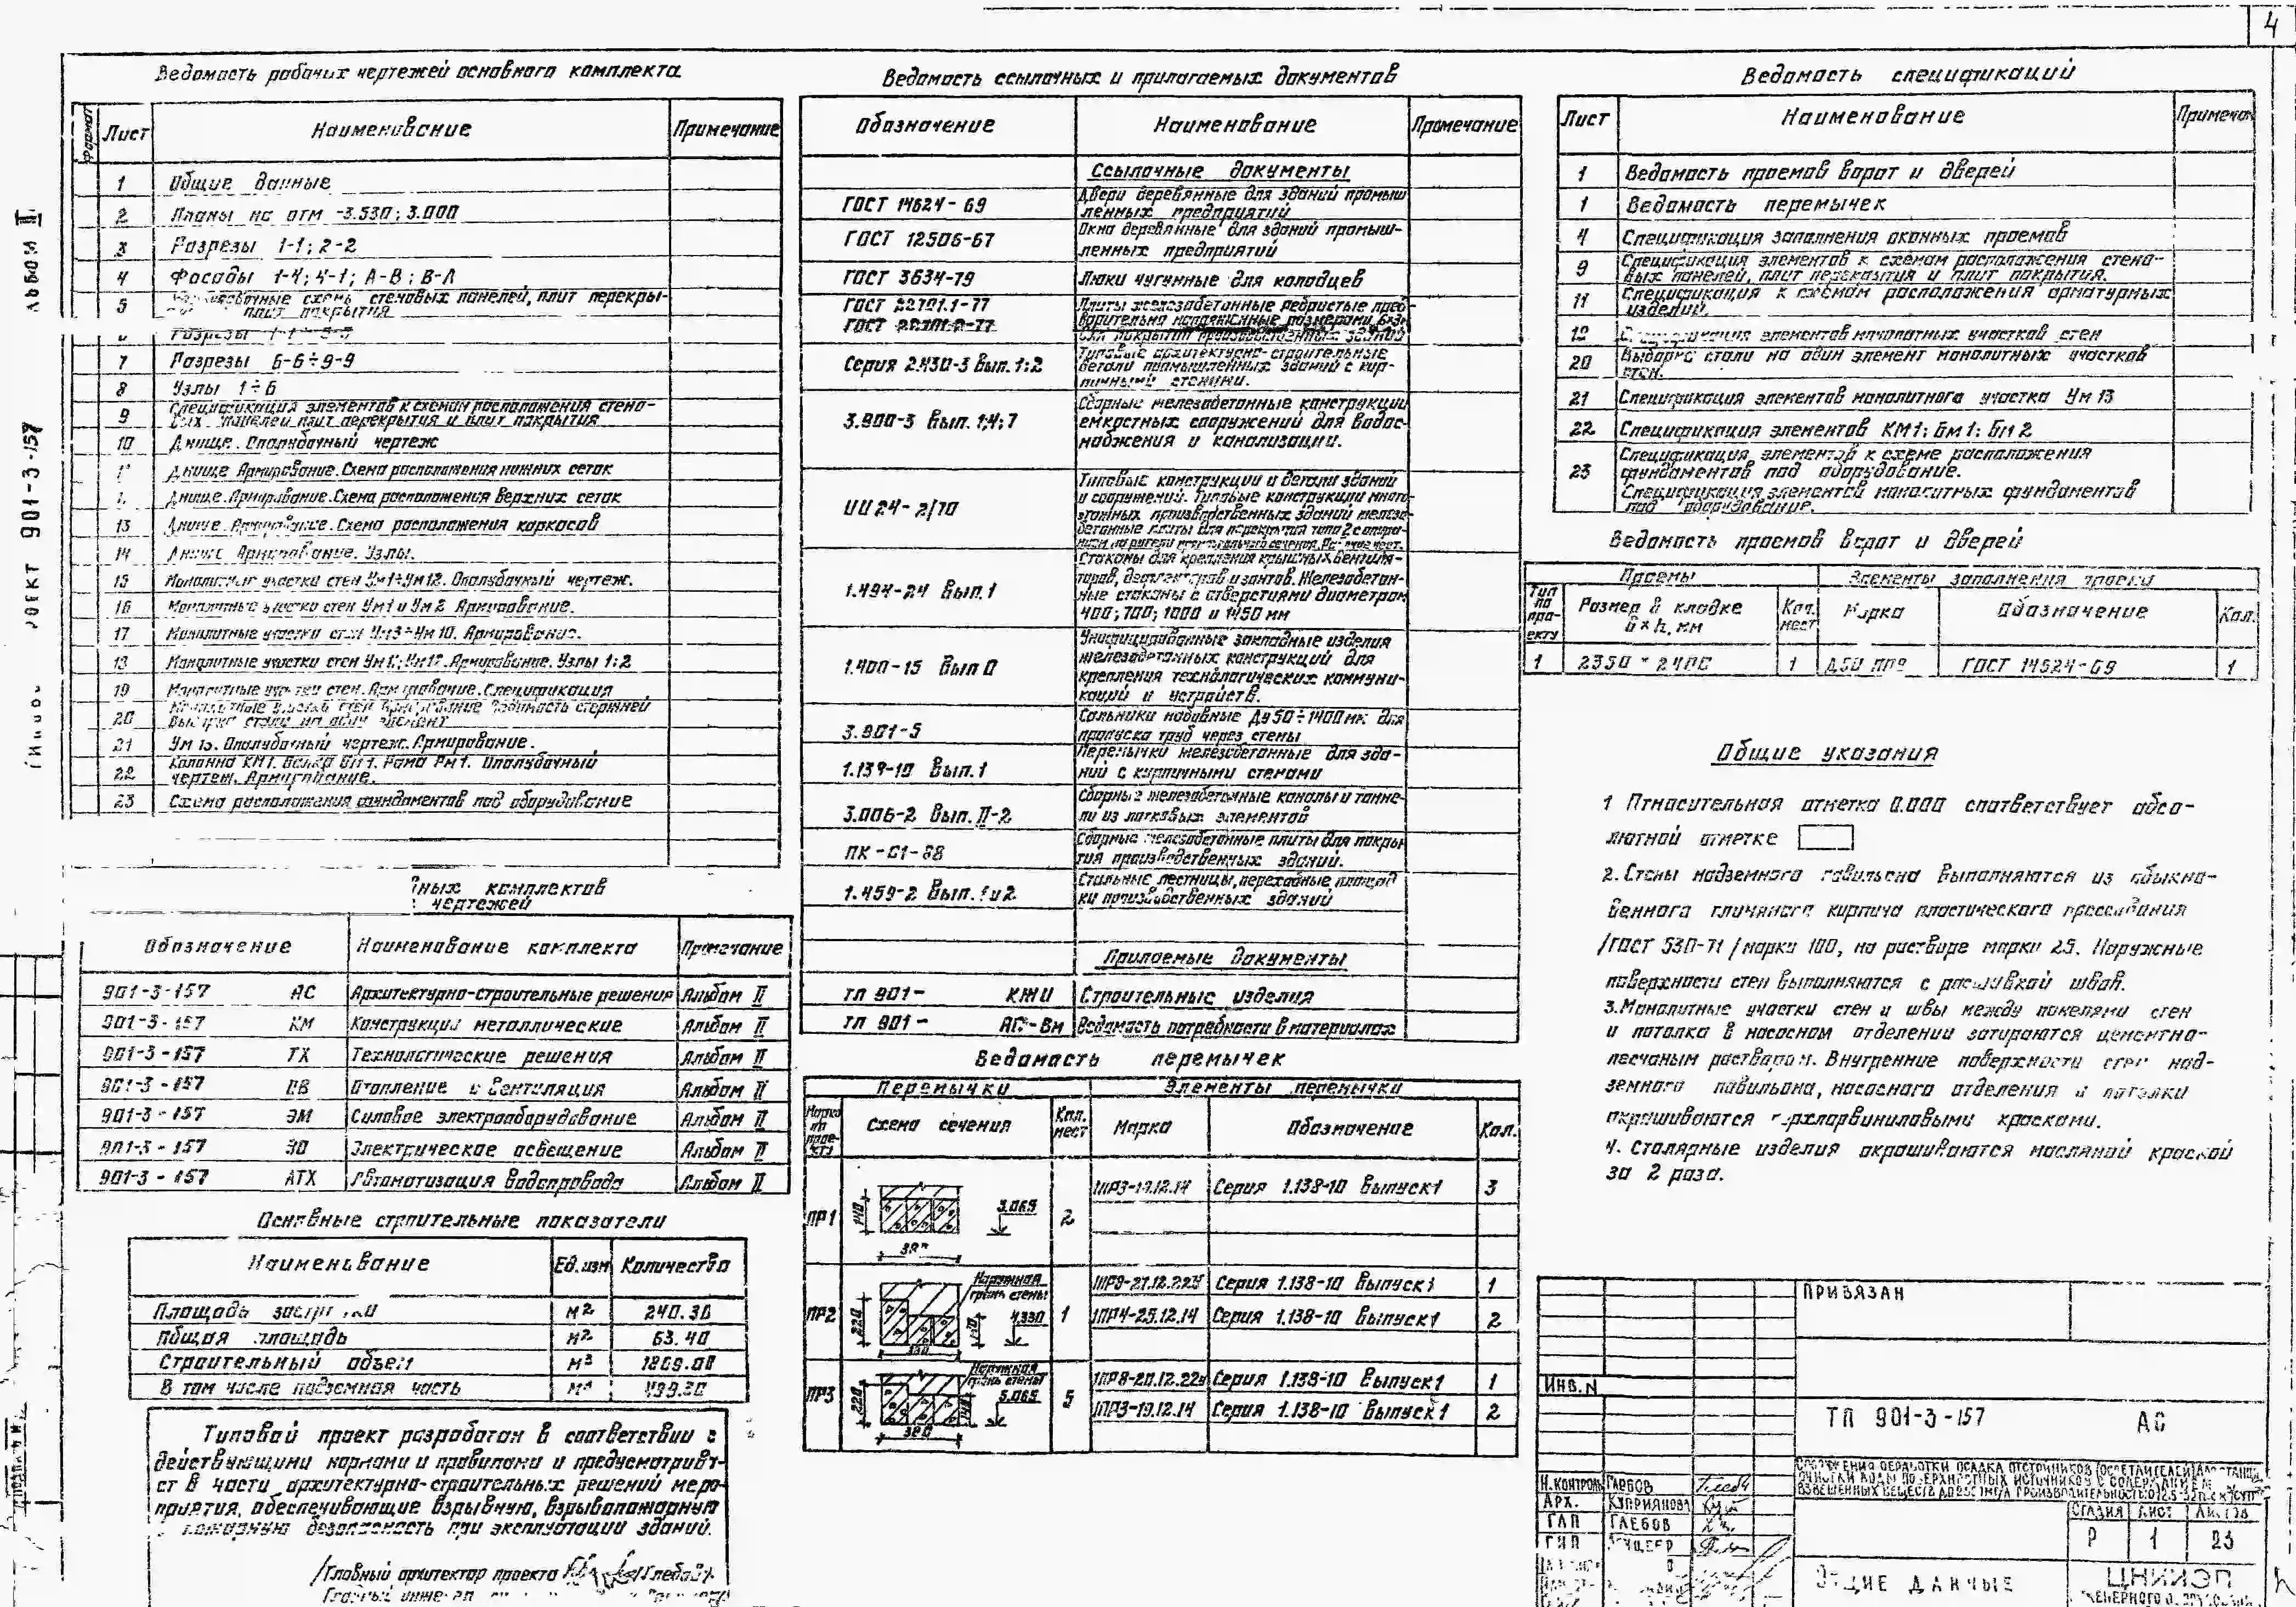 4
Ведомость рабочих чертежей основного комплекта
Формат Лист Наименование Примечание
1 Общие данные
2 Планы на отм -3.530; 3.000
3 Разрезы 1-1; 2-2
4 Фасады 1-4; 4-1; А-В; В-А
5 схемы стеновых панелей, плит перекры-
плит покрытия
Разрезы
7 Разрезы 6-6÷9-9
8 Узлы 1÷6
9 Спецификация элементов к схемам расположения стено-
вых панелей плит перекрытия и плит покрытия
10 Днище. Опалубочный чертеж
Днище Армирование. Схема расположения нижних сеток
Днище. Армирование. Схема расположения верхних сеток
13 Днище. Армирование. Схема расположения каркасов
14 Днище Армирование. Узлы.
15 Монолитные участки стен Ум1÷Ум12. Опалубочный чертеж.
16 Монолитные участки стен Ум1 и Ум2 Армирование.
17 Монолитные участки стен Ум3÷Ум10. Армирование.
18 Монолитные участки стен Армирование. Узлы 1:2
19 Монолитные участки стен. Армирование. Спецификация
20 Монолитные участки стен Армирование Ведомость стержней
Выборка стали на один элемент
21 Ум 13. Опалубочный чертеж. Армирование.
22 Колонна КМ1. Балка БМ1. Рама РМ1. Опалубочный
чертеж. Армирование.
23 Схема расположения фундаментов под оборудование
ных комплектов
чертежей
Обозначение Наименование комплекта Примечание
901-3-157 АС Архитектурно-строительные решения Альбом II
901-3-157 КМ Конструкции металлические Альбом II
901-3-157 ТХ Технологические решения Альбом II
901-3-157 ОВ Отопление и вентиляция Альбом II
901-3-157 ЭМ Силовое электрооборудование Альбом II
901-3-157 ЭО Электрическое освещение Альбом II
901-3-157 АТХ Автоматизация водопровода Альбом II
Основные строительные показатели
Наименование Ед. изм Количество
Площадь м2 240.30
Общая площадь м2 63.40
Строительный объем м3 1869.00
В том числе подземная часть 499.30
Типовой проект разработан в соответствии с
действующими нормами и правилами и предусматрива-
ет в части архитектурно-строительных решений меро-
приятия, обеспечивающие взрывную, взрывопожарную
и пожарную безопасность при эксплуатации зданий.
/Главный архитектор проекта Глебов/
Ведомость ссылочных и прилагаемых документов
Обозначение Наименование Примечание
Ссылочные документы
ГОСТ 14624-69 Двери деревянные для зданий промыш
ленных предприятий
ГОСТ 12506-67 Окна деревянные для зданий промыш-
ленных предприятий
ГОСТ 3634-79 Люки чугунные для колодцев
ГОСТ 22701.1-77 Плиты железобетонные ребристые пред
ГОСТ 22701.2-77 варительно напряженные размерами 6×3м
для покрытий производственных зданий
Серия 2.430-3 Вып. 1:2 Типовые архитектурно-строительные
детали промышленных зданий с кир-
пичными стенами.
3.900-3 Вып. 1;4;7 Сборные железобетонные конструкции
емкостных сооружений для водос-
набжения и канализации.
ИИ24-2/70 Типовые конструкции и детали зданий
и сооружений. Типовые конструкции много
этажных производственных зданий железо
бетонные плиты для перекрытия типа 2 с опира-
нием на ригели прямоугольного сечения.
1.494-24 Вып. 1 Стаканы для крепления крышных вентиля-
торов, дефлекторов и зонтов. Железобетон-
ные стаканы с отверстиями диаметром
400; 700; 1000 и 1450 мм
1.400-15 Вып 0 Унифицированные закладные изделия
железобетонных конструкций для
крепления технологических коммуни-
каций и устройств.
3.901-5 Сальники набивные Ду 50÷1400мм для
пропуска труб через стены
1.139-10 Вып. 1 Перемычки железобетонные для зда-
ний с кирпичными стенами
3.006-2 Вып. II-2 Сборные железобетонные каналы и тонне-
ли из лотковых элементов
ПК-01-88 Сборные железобетонные плиты для покры
тия производственных зданий.
1.459-2 Вып. 1 и 2 Стальные лестницы, переходные площад
ки производственных зданий
Прилагаемые документы
ТП 901- КЖИ Строительные изделия
ТП 901- АС-Вм Ведомость потребности в материалах
Ведомость перемычек
Перемычки Элементы перемычки
Марка по проекту Схема сечения Кол. мест Марка Обозначение Кол.
ПР1 140 380 3.065 2 1ПР3-19.12.14 Серия 1.138-10 Выпуск1 3
ПР2 220 Наружная грань стены 4.330 1 1ПР9-27.12.22у Серия 1.138-10 Выпуск1 1
1ПР4-25.12.14 Серия 1.138-10 Выпуск1 2
ПР3 220 Наружная грань стены 3.065 140 380 5 1ПР8-20.12.22у Серия 1.138-10 Выпуск1 1
1ПР3-19.12.14 Серия 1.138-10 Выпуск1 2
Ведомость спецификаций
Лист Наименование Примечан
1 Ведомость проемов ворот и дверей
1 Ведомость перемычек
4 Спецификация заполнения оконных проемов
9 Спецификация элементов к схемам расположения стено-
вых панелей, плит перекрытия и плит покрытия.
11 Спецификация к схемам расположения арматурных
изделий.
19 Спецификация элементов монолитных участков стен
20 Выборка стали на один элемент монолитных участков
стен.
21 Спецификация элементов монолитного участка Ум 13
22 Спецификация элементов КМ1; БМ1; БМ2
23 Спецификация элементов к схеме расположения
фундаментов под оборудование.
Спецификация элементов монолитных фундаментов
под оборудование.
Ведомость проемов ворот и дверей
Проемы Элементы заполнения проема
Тип по проекту Размер в кладке b×h, мм Кол. мест Марка Обозначение Кол.
1 2350 × 2400 1 ГОСТ 14624-69 1
Общие указания
1 Относительная отметка 0.000 соответствует абсо-
лютной отметке
2. Стены надземного павильона выполняются из обыкно-
венного глиняного кирпича пластического прессования
/ГОСТ 530-71/марки 100, на растворе марки 25. Наружные
поверхности стен выполняются с расшивкой швов.
3. Монолитные участки стен и швы между панелями стен
и потолка в насосном отделении затираются цементно-
песчаным раствором. Внутренние поверхности стен над-
земного павильона, насосного отделения и потолки
окрашиваются перхлорвиниловыми красками.
4. Столярные изделия окрашиваются масляной краской
за 2 раза.
ПРИВЯЗАН
ИНВ. N
ТП 901-3-157 АС
СООРУЖЕНИЯ ОБРАБОТКИ ОСАДКА ОТСТОЙНИКОВ (ОСВЕТЛИТЕЛЕЙ)
ОЧИСТКИ ВОДЫ ПОВЕРХНОСТНЫХ ИСТОЧНИКОВ С СОДЕРЖАНИЕМ
ВЗВЕШЕННЫХ ВЕЩЕСТВ ПРОИЗВОДИТЕЛЬНОСТЬЮ
Н. КОНТРОЛЬ ГЛЕБОВ
АРХ. КУПРИЯНОВА
ГАП ГЛЕБОВ
ГИП
СТАДИЯ ЛИСТ ЛИСТОВ
Р 1 23
ОБЩИЕ ДАННЫЕ
ЦНИИЭП
АЛЬБОМ II
ПРОЕКТ 901-3-157